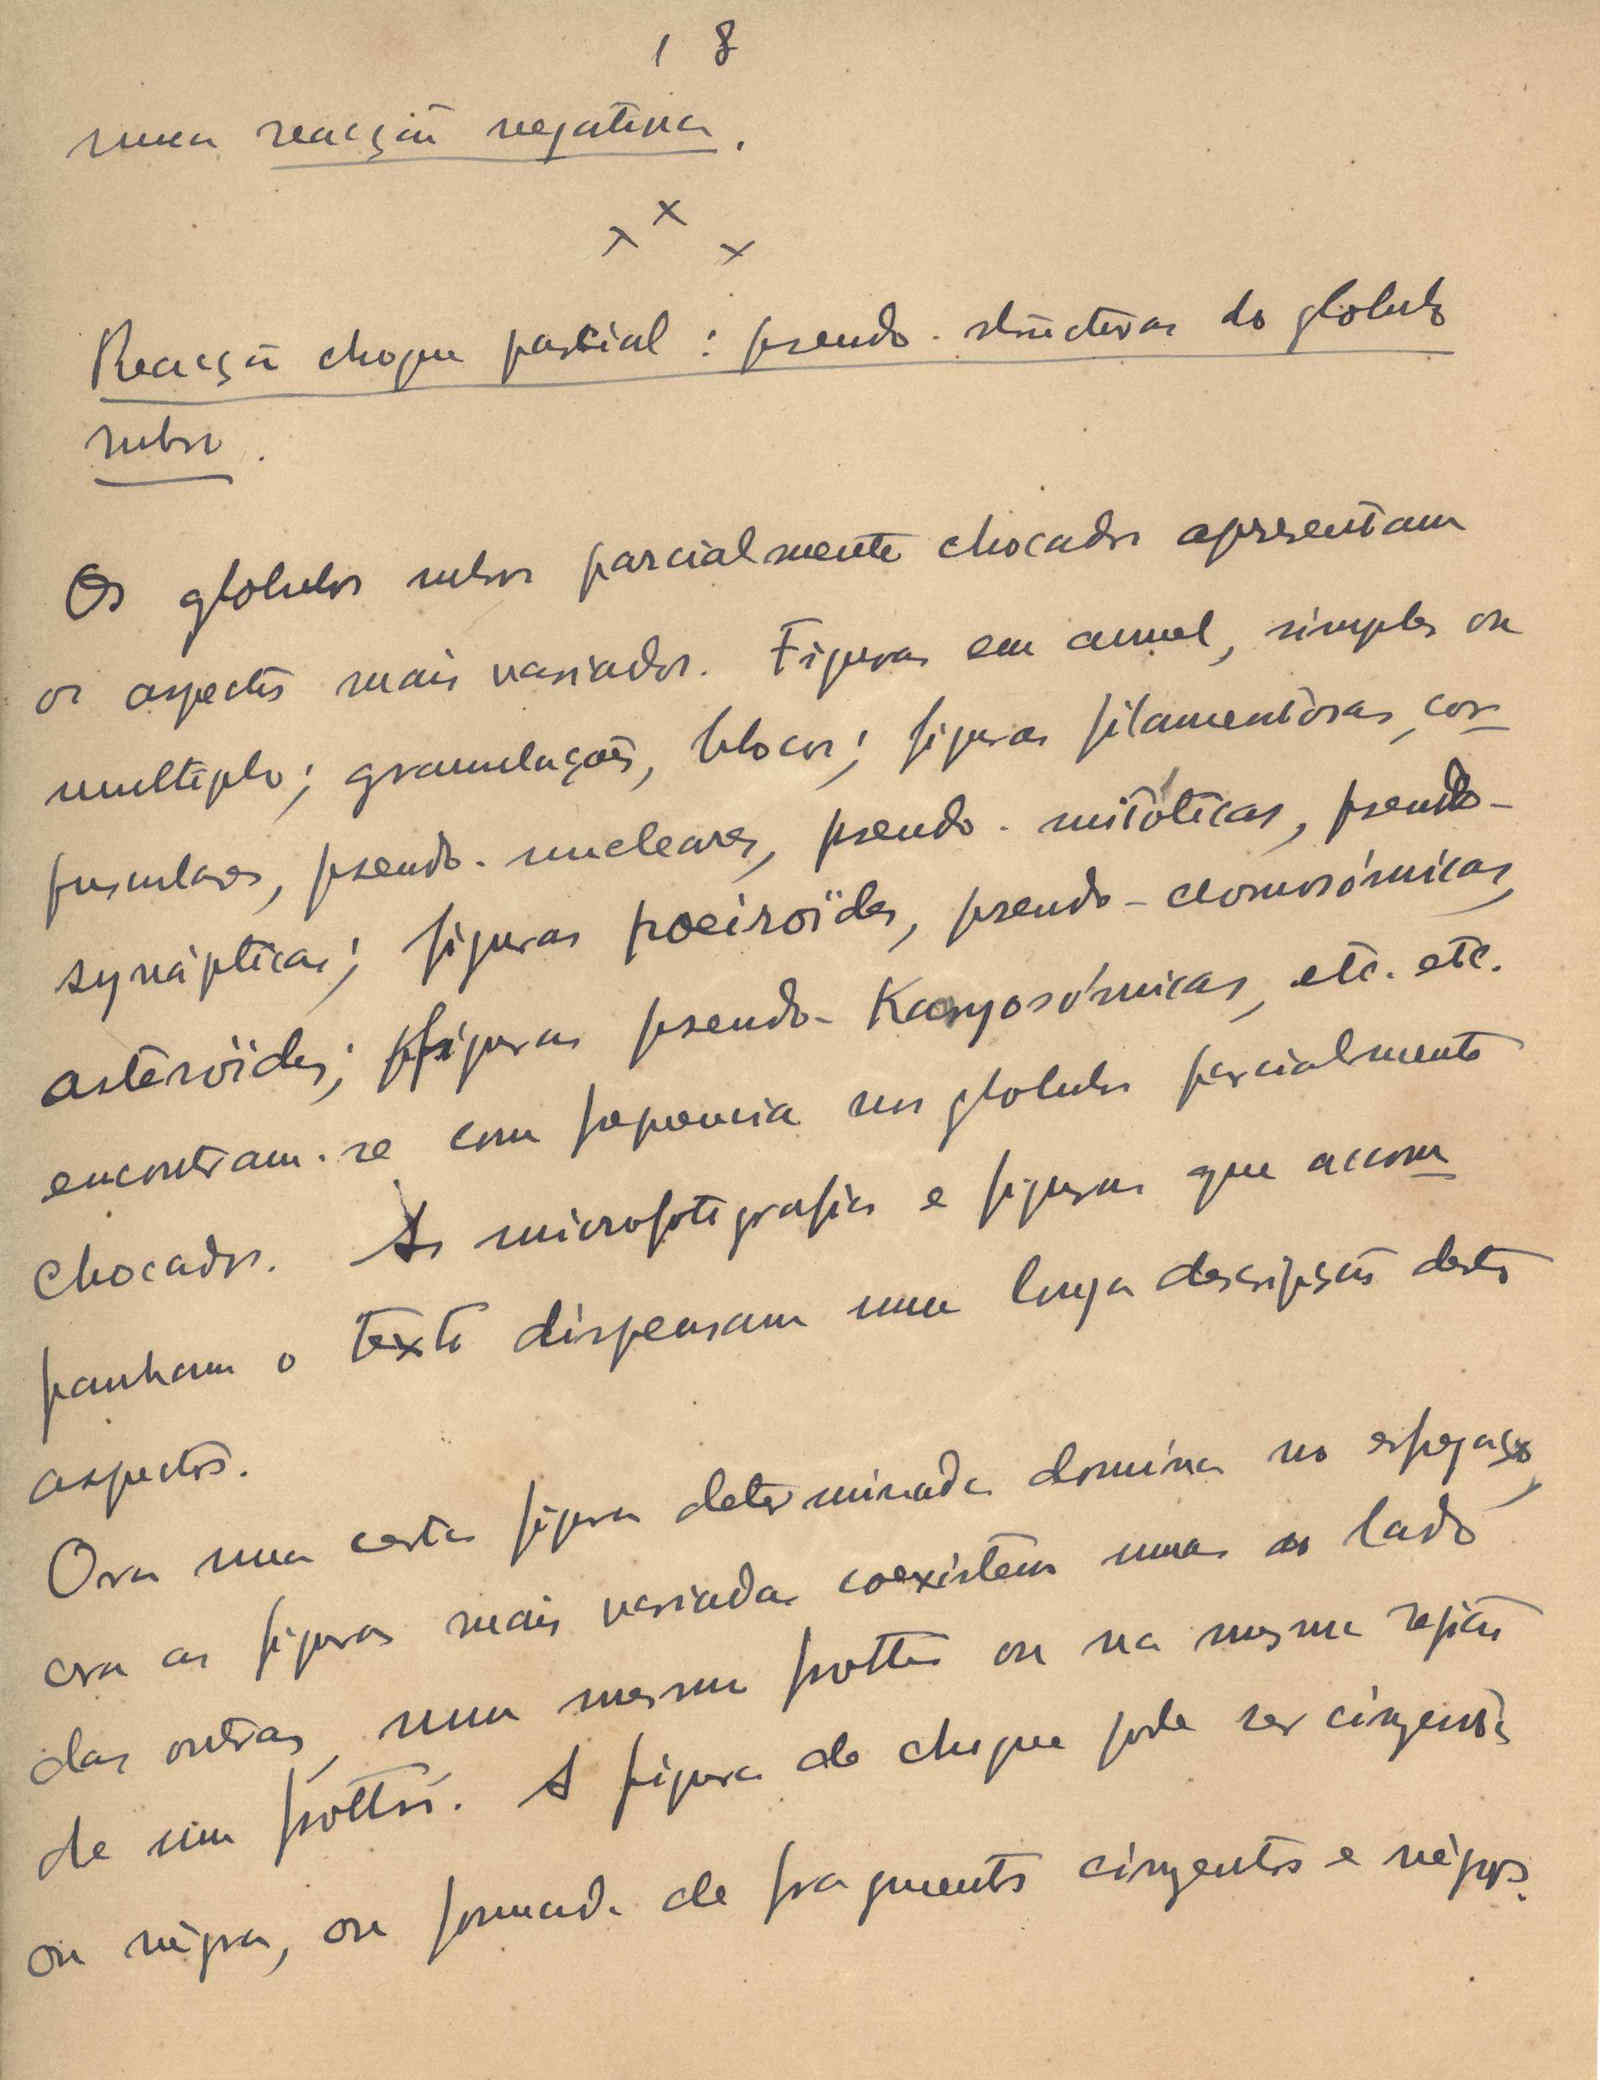 18
numa reacção negativa.
x x x
Reacção choque parcial: pseudo-structuras do globulo
rubro.
Os globulos rubros parcialmente chocados apresentam
os aspectos mais variados. Figuras em annel, simples ou
multiplo; granulações, blocos; figuras filamentosas, cor-
pusculares, pseudo-nucleares, pseudo-mitóticas, pseudo-
synápticas; figuras poeiroïdes, pseudo-cromosómicas,
asteroïdes; figuras pseudo-Karyosómicas, etc. etc.
encontram-se com frequencia nos globulos parcialmente
chocados. As microfotografias e figuras que accom-
panham o texto dispensam uma longa descripção destes
aspectos.
Ora uma certa figura determinada domina no esfregaço,
ora as figuras mais variadas coexistem umas ao lado
das outras, num mesmo frottis ou na mesma região
de um frottis. A figura de choque pode ser cinzenta
ou négra, ou formada de fragmentos cinzentos e négros.